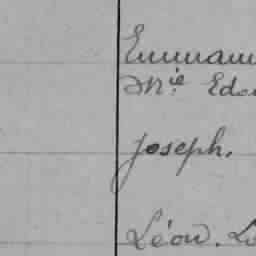 Emmanu
Mie Edo
Joseph.
Léon. Lo